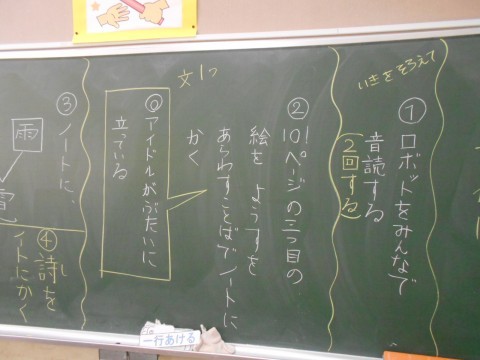 いきをそろえて
①ロボットをみんなで
音読する
(2回する)
②10ページの三つ目の
絵を ようすを
あらわすことばでノートに
かく
文1つ
◎アイドルがぶたいに
立っている
③ノートに、
雨
④詩を
し
ノートにかく
一行あける